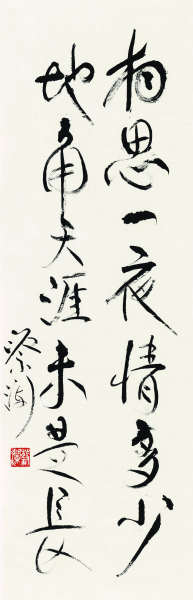 相思一夜情多少
地角天涯未是长